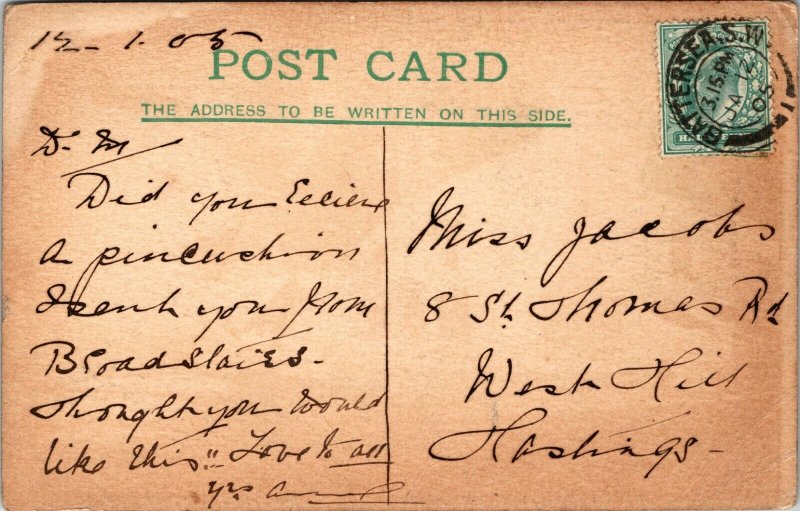 12-1-05
POST CARD
THE ADDRESS TO BE WRITTEN ON THIS SIDE.
BATTERSEA.S.W.
3.15PM
JA 12
05
1
HAL
Dr M
Did you Recieve
a pincushion
I sent you from
Broadstairs -
thought you would
like this" Love to all
yrs
Miss Jacobs
8 St Thomas Rd
West Hill
Hastings -